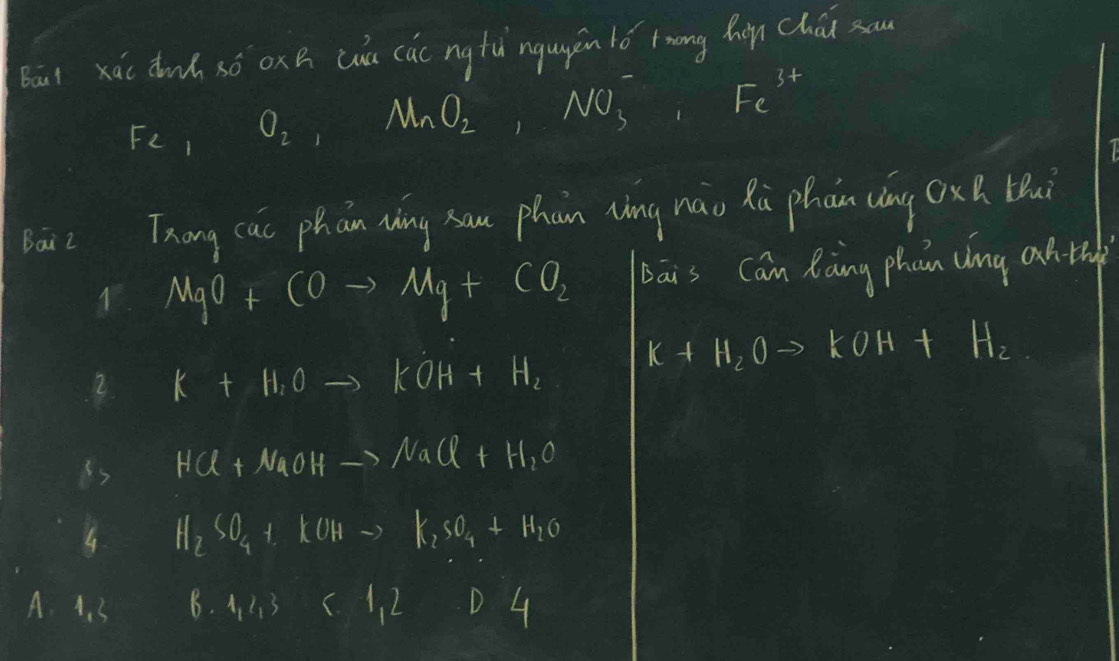 Bài 1 xác định số oxh của các ng tử nguyên tố trong hợp chất sau
Fe, O₂, MnO₂, NO₃⁻, Fe³⁺
Bài 2 Trong các phản ứng sau phản ứng nào là phản ứng oxh khử
1. MgO + CO → Mg + CO₂
2. K + H₂O → KOH + H₂
3, HCl + NaOH → NaCl + H₂O
4. H₂SO₄ + KOH → K₂SO₄ + H₂O
A. 1,3 B. 1,2,3 C. 1,2 D 4
Bài 3 Cân bằng phản ứng oxh-khử
K + H₂O → KOH + H₂.